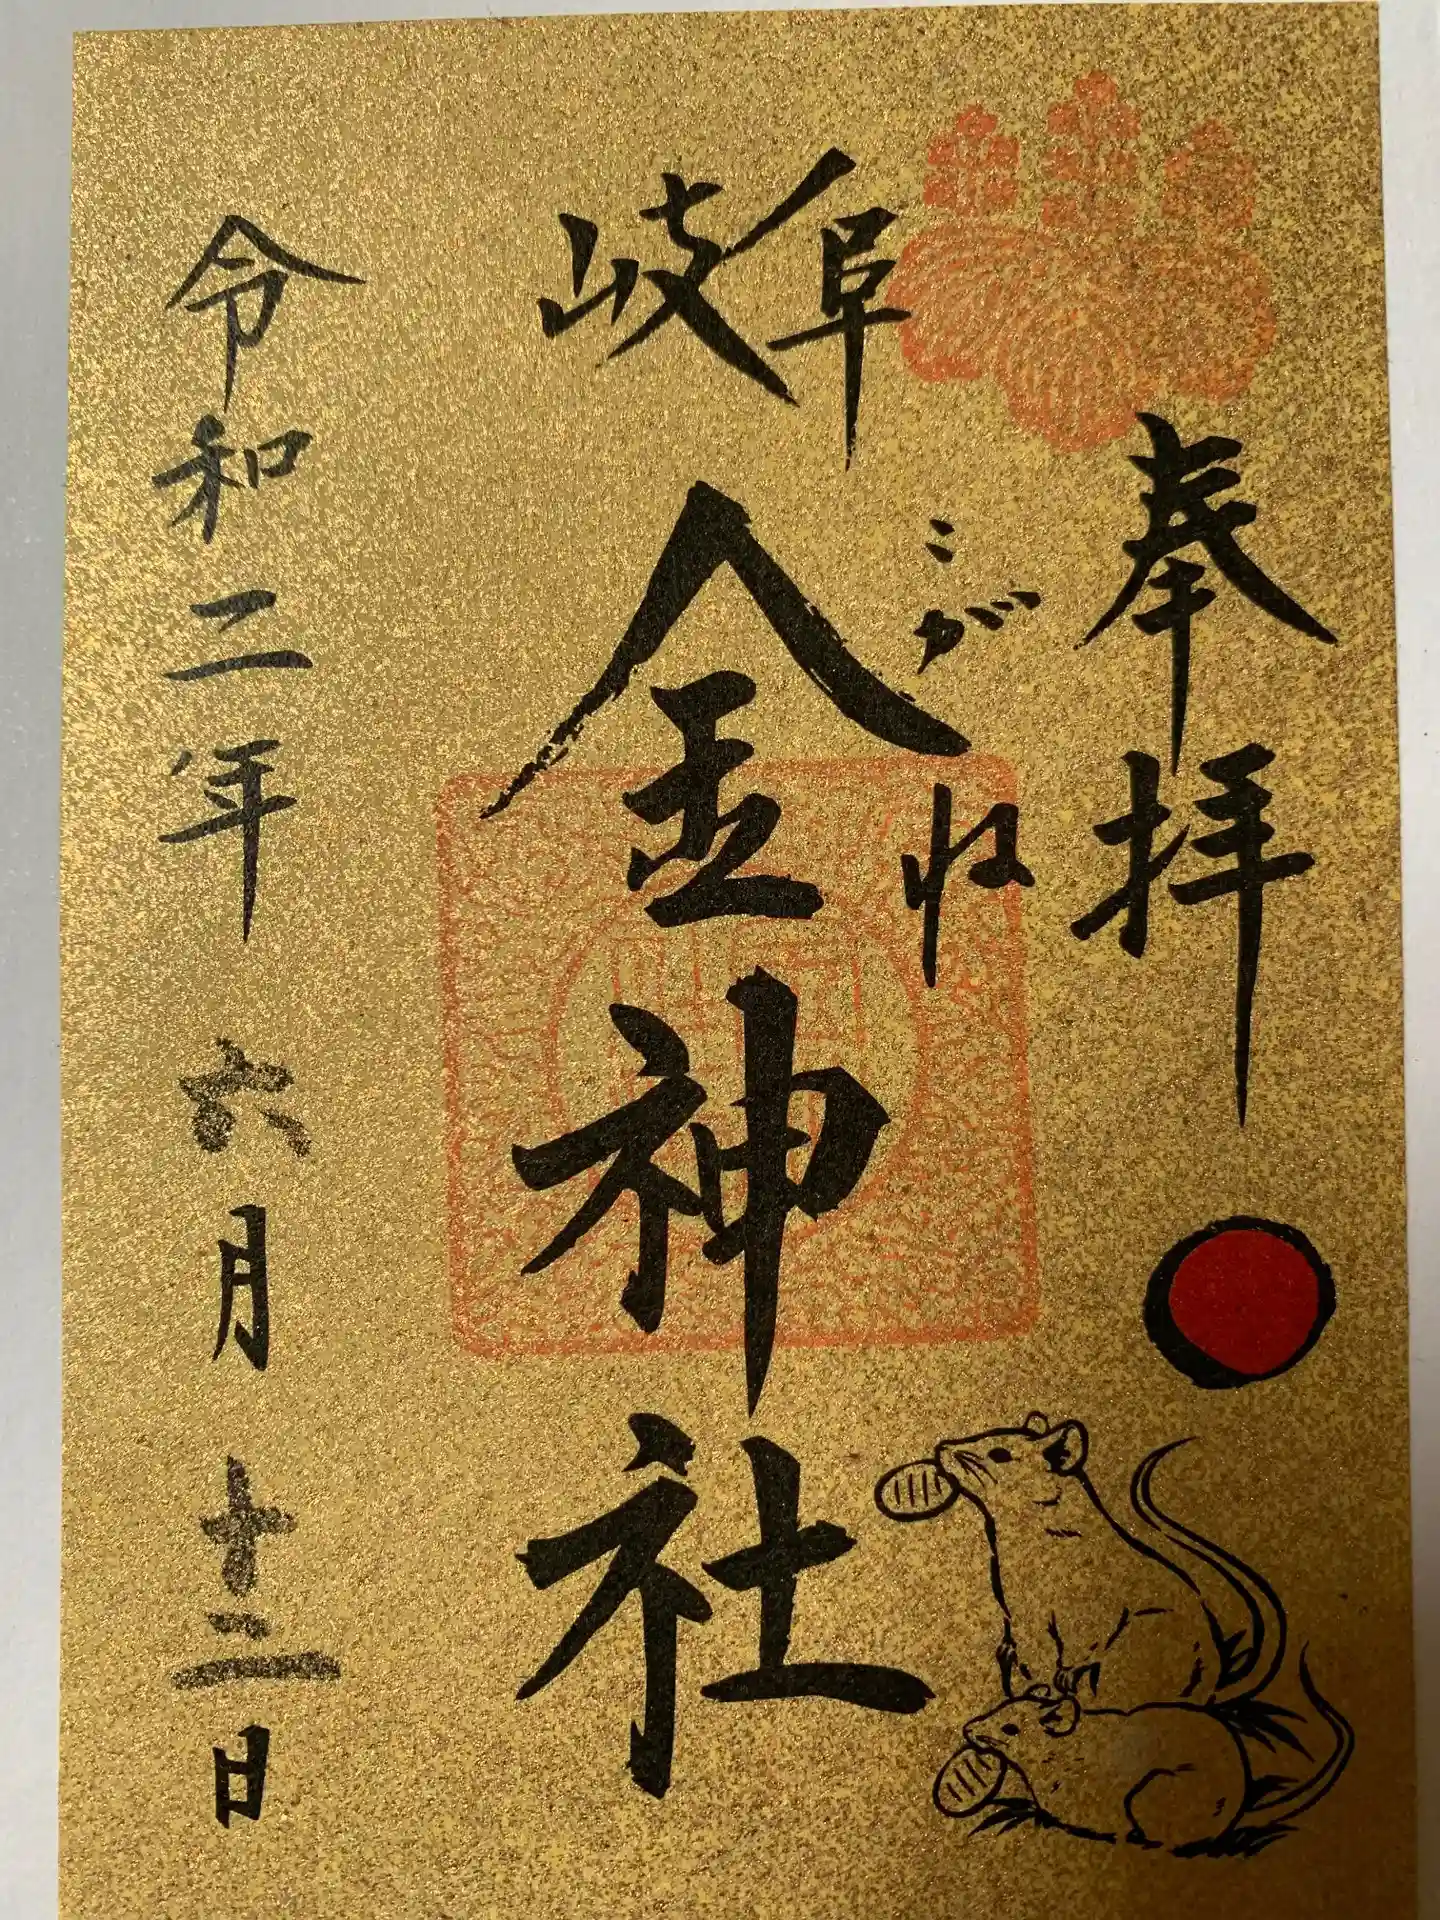 奉拝
こがね
岐阜
金神社
令和二年六月十二日